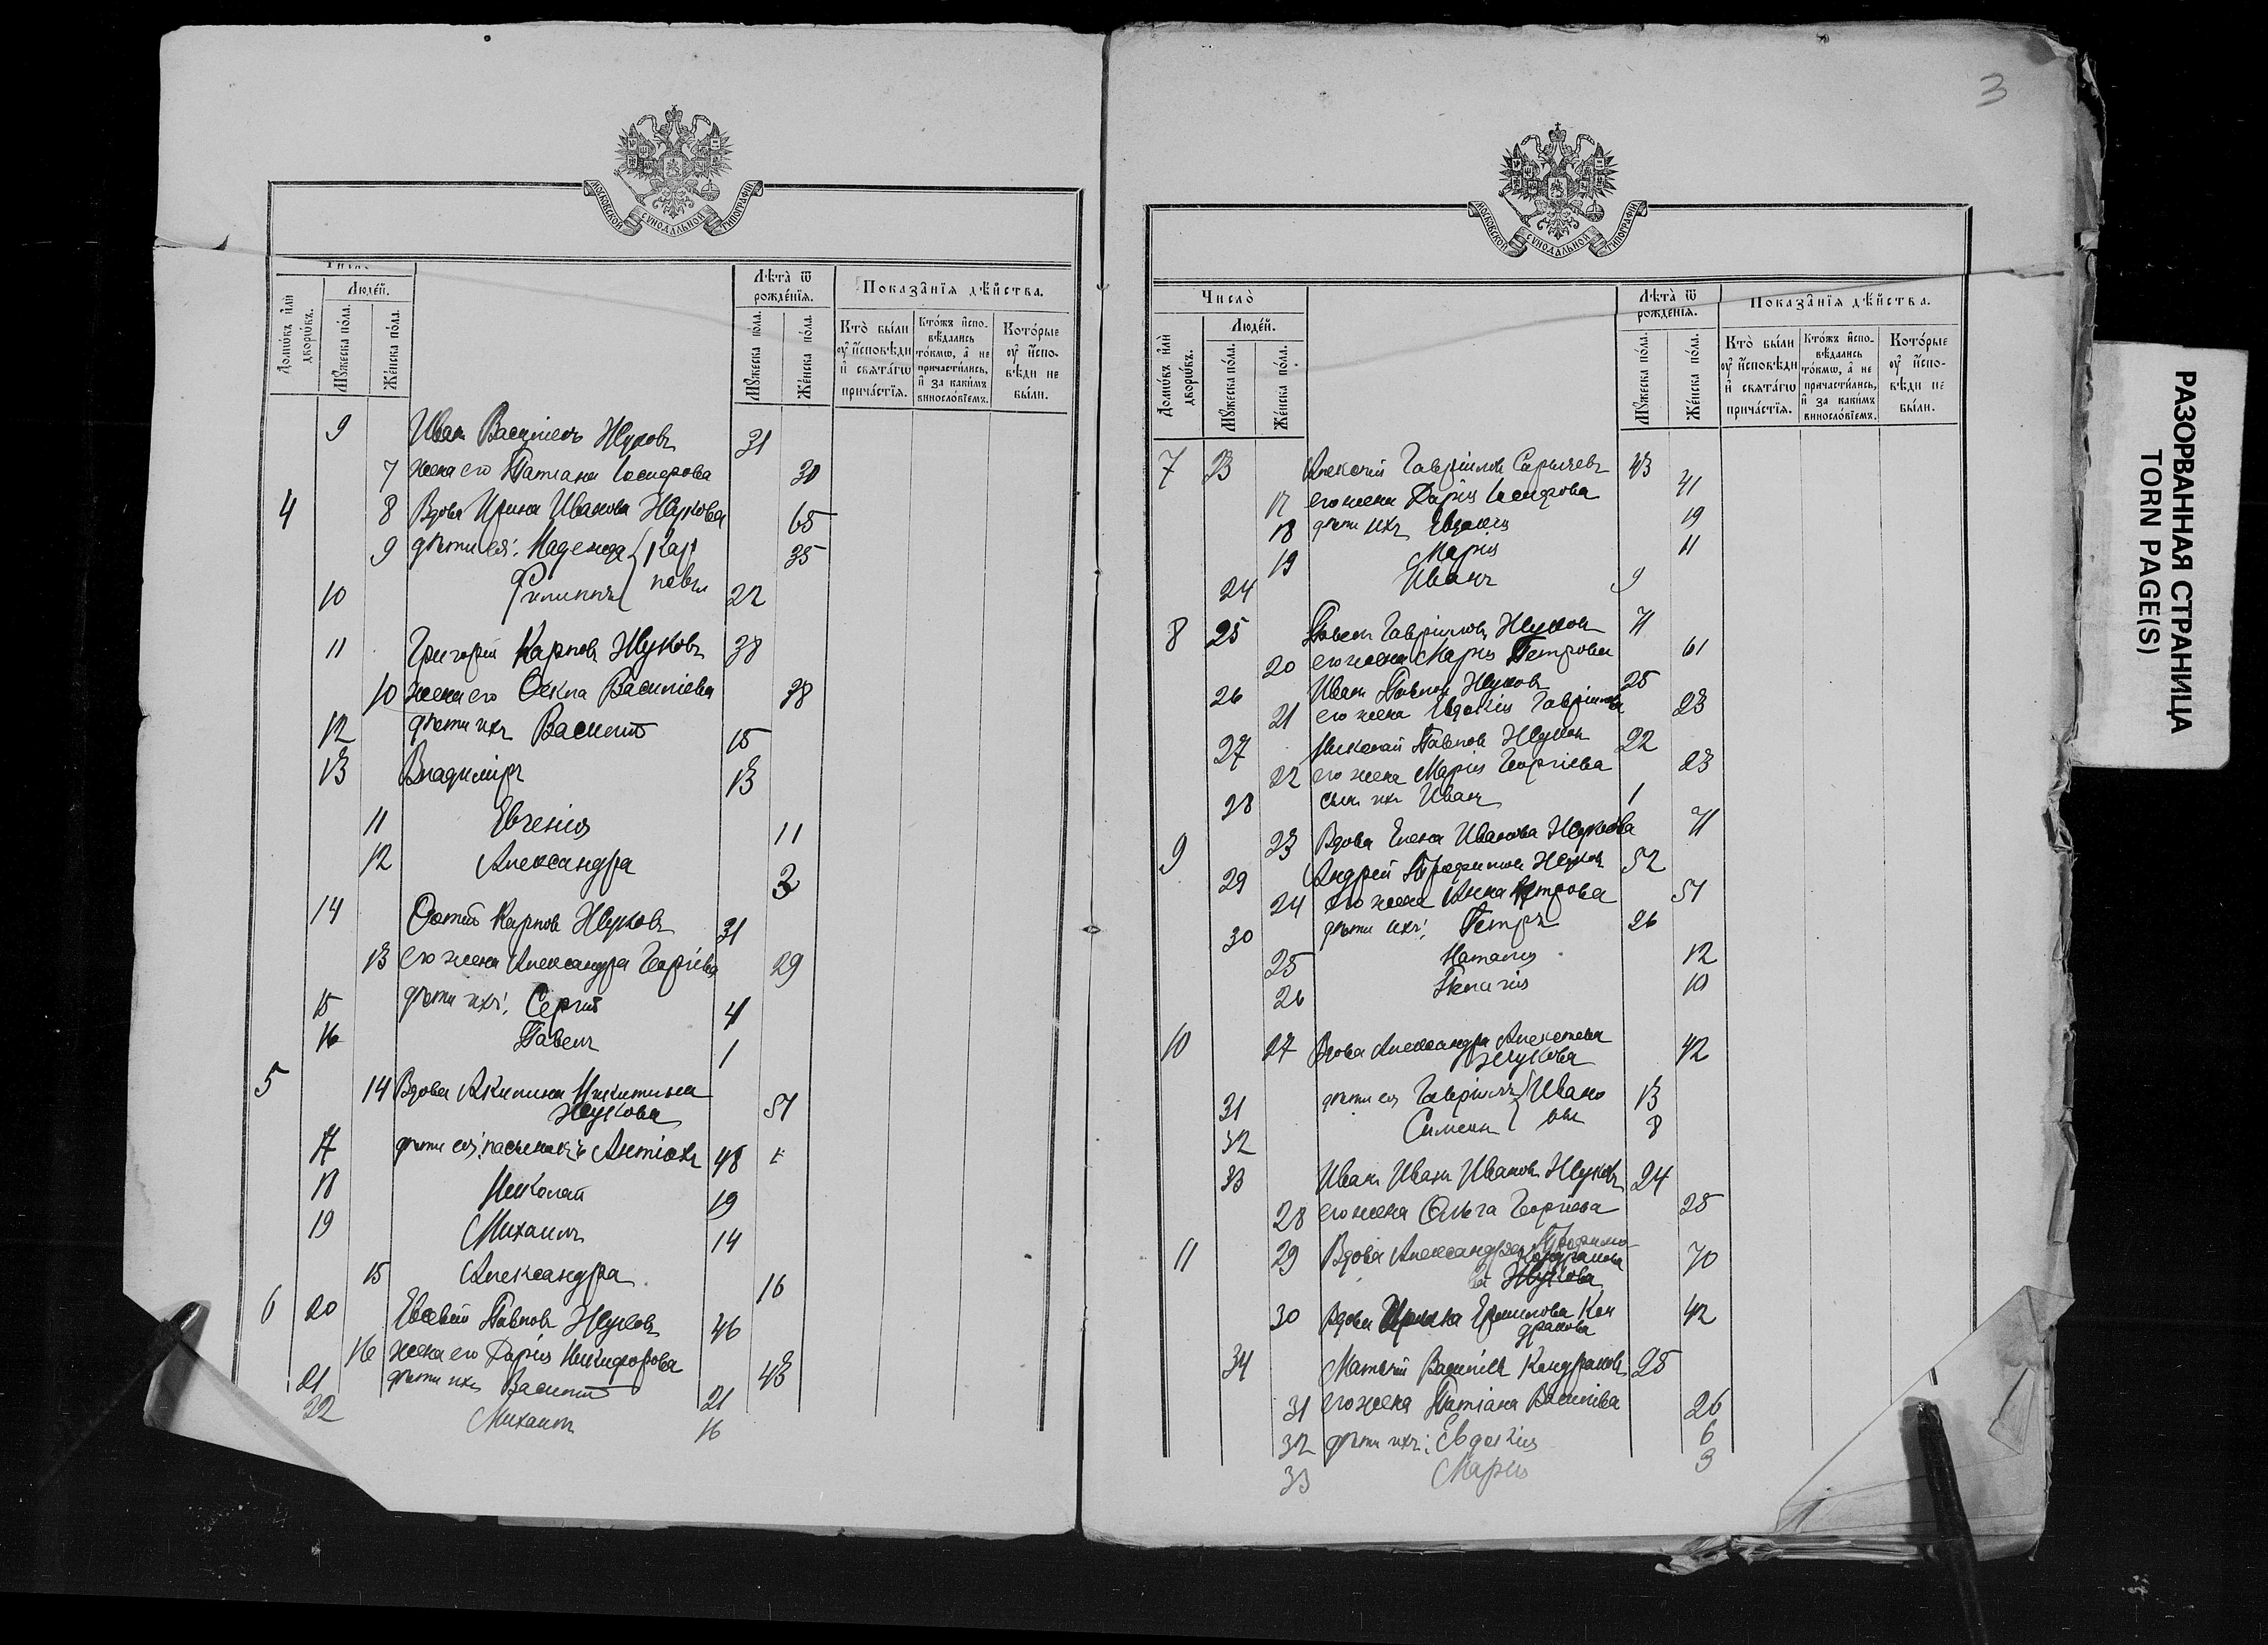 МОСКОВСКОЙ СУНОДАЛЬНОЙ ТИПОГРАФІИ
Число
Людей.
Домѡвъ или дворѡвъ.
Мужеска пола.
Женска пола.
Лѣта ѿ рожденїѧ.
Мужеска пола.
Женска пола.
Показанїѧ дѣйства.
Кто были оу исповѣди и свѧтагѡ причастїѧ.
Ктожъ исповѣдались токмѡ, а не причастились, и за какимъ винословїемъ.
Которые оу исповѣди не были.
9 Иванъ Василіевъ Жуковъ 31
7 жена его Татіана Іосифова 30
4 8 Вдова Ирина Иванова Жукова 65
9 дѣти ея: Надежда Кар 35
10 Филиппъ повы 22
11 Григорій Карповъ Жуковъ 38
10 жена его Ѳекла Василіева 38
12 дѣти ихъ Василій 15
13 Владиміръ 13
11 Евгенія 11
12 Александра 3
14 Карповъ Жуковъ 31
13 его жена Александра Георгіева 29
15 дѣти ихъ: Сергій 4
16 Павелъ 1
5 14 Вдова Акилина Никитина
Жукова 51
17 дѣти ея: пасынокъ Антіохъ 48
18 Николай 19
19 Михаилъ 14
15 Александра 16
6 20 Евсевій Павловъ Жуковъ 46
16 жена его Дарія Никифорова 43
21 дѣти ихъ Василій 21
22 Михаилъ 16
3
МОСКОВСКОЙ СУНОДАЛЬНОЙ ТИПОГРАФІИ
Число
Людей.
Домѡвъ или дворѡвъ.
Мужеска пола.
Женска пола.
Лѣта ѿ рожденїѧ.
Мужеска пола.
Женска пола.
Показанїѧ дѣйства.
Кто были оу исповѣди и свѧтагѡ причастїѧ.
Ктожъ исповѣдались токмѡ, а не причастились, и за какимъ винословїемъ.
Которые оу исповѣди не были.
7 23 Алексій Гавріиловъ Сарычевъ 43
17 его жена Дарія Іосифова 41
18 дѣти ихъ Евдокія 19
19 Марія 11
24 Иванъ 9
8 25 Павелъ Гавріиловъ Жуковъ 71
20 его жена Марія Петрова 61
26 Иванъ Павловъ Жуковъ 25
21 его жена Евдокія Гавріилова 23
27 Николай Павловъ Жуковъ 22
22 его жена Марія Георгіева 23
28 сынъ ихъ Иванъ 1
9 23 Вдова Елена Иванова Жукова 71
29 Андрей Трофимовъ Жуковъ 52
24 его жена Анна Петрова 51
30 дѣти ихъ: Петръ 26
25 Наталія 12
26 Пелагія 10
10 27 Вдова Александра Алексѣева
Жукова 42
31 дѣти ея Гавріилъ Ивано 13
32 Симеонъ вы 8
33 Иванъ Иванъ Ивановъ Жуковъ 24
28 его жена Ольга Георгіева 25
11 29 Вдова Александра Трофимо
Кондракова
ва Жукова 70
30 Вдова Ирина Ермилова Кон
дракова 42
34 Матѳій Василіевъ Кондраковъ 25
31 его жена Татіана Василіева 26
32 дѣти ихъ: Евдокія 6
33 Марія 3
РАЗОРВАННАЯ СТРАНИЦА
TORN PAGE(S)